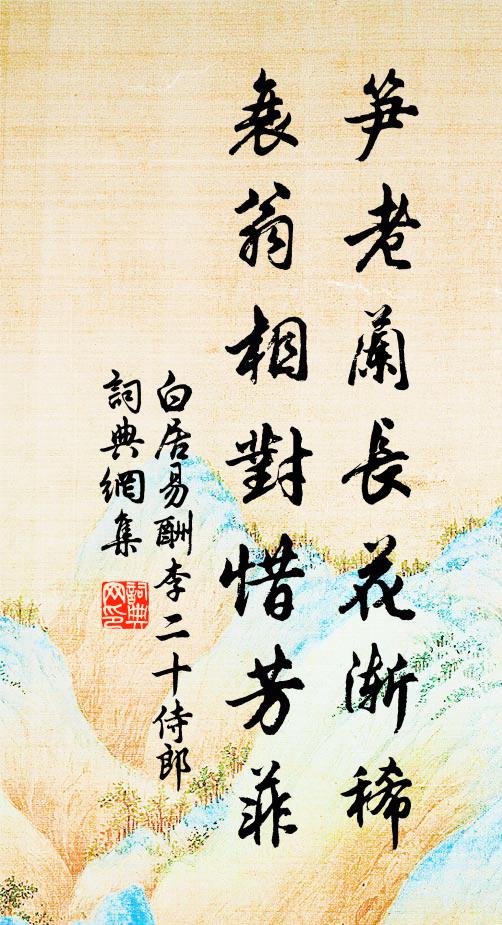 笋老蘭長花漸稀
衰翁相對惜芳菲
白居易酬李二十侍郎
詞典網集
詞典网印